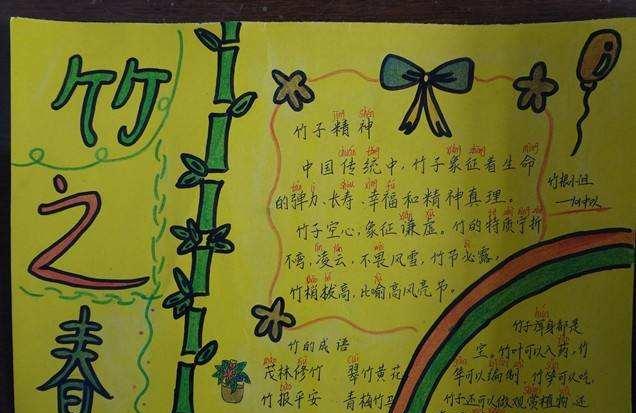 竹之春
竹子精神
中国传统中,竹子象征着生命
的弹力、长寿、幸福和精神真理。
竹子空心,象征谦虚。竹的特质宁折
不弯,凌云,不畏风雪,竹节必露,
竹梢拔高,比喻高风亮节。
竹根小组
竹的成语
茂林修竹 翠竹黄花
竹报平安 青梅竹马
竹子浑身都是
宝,竹叶可以入药,竹
竿可以编制,竹笋可以吃,
竹子还可以做观赏植物,还